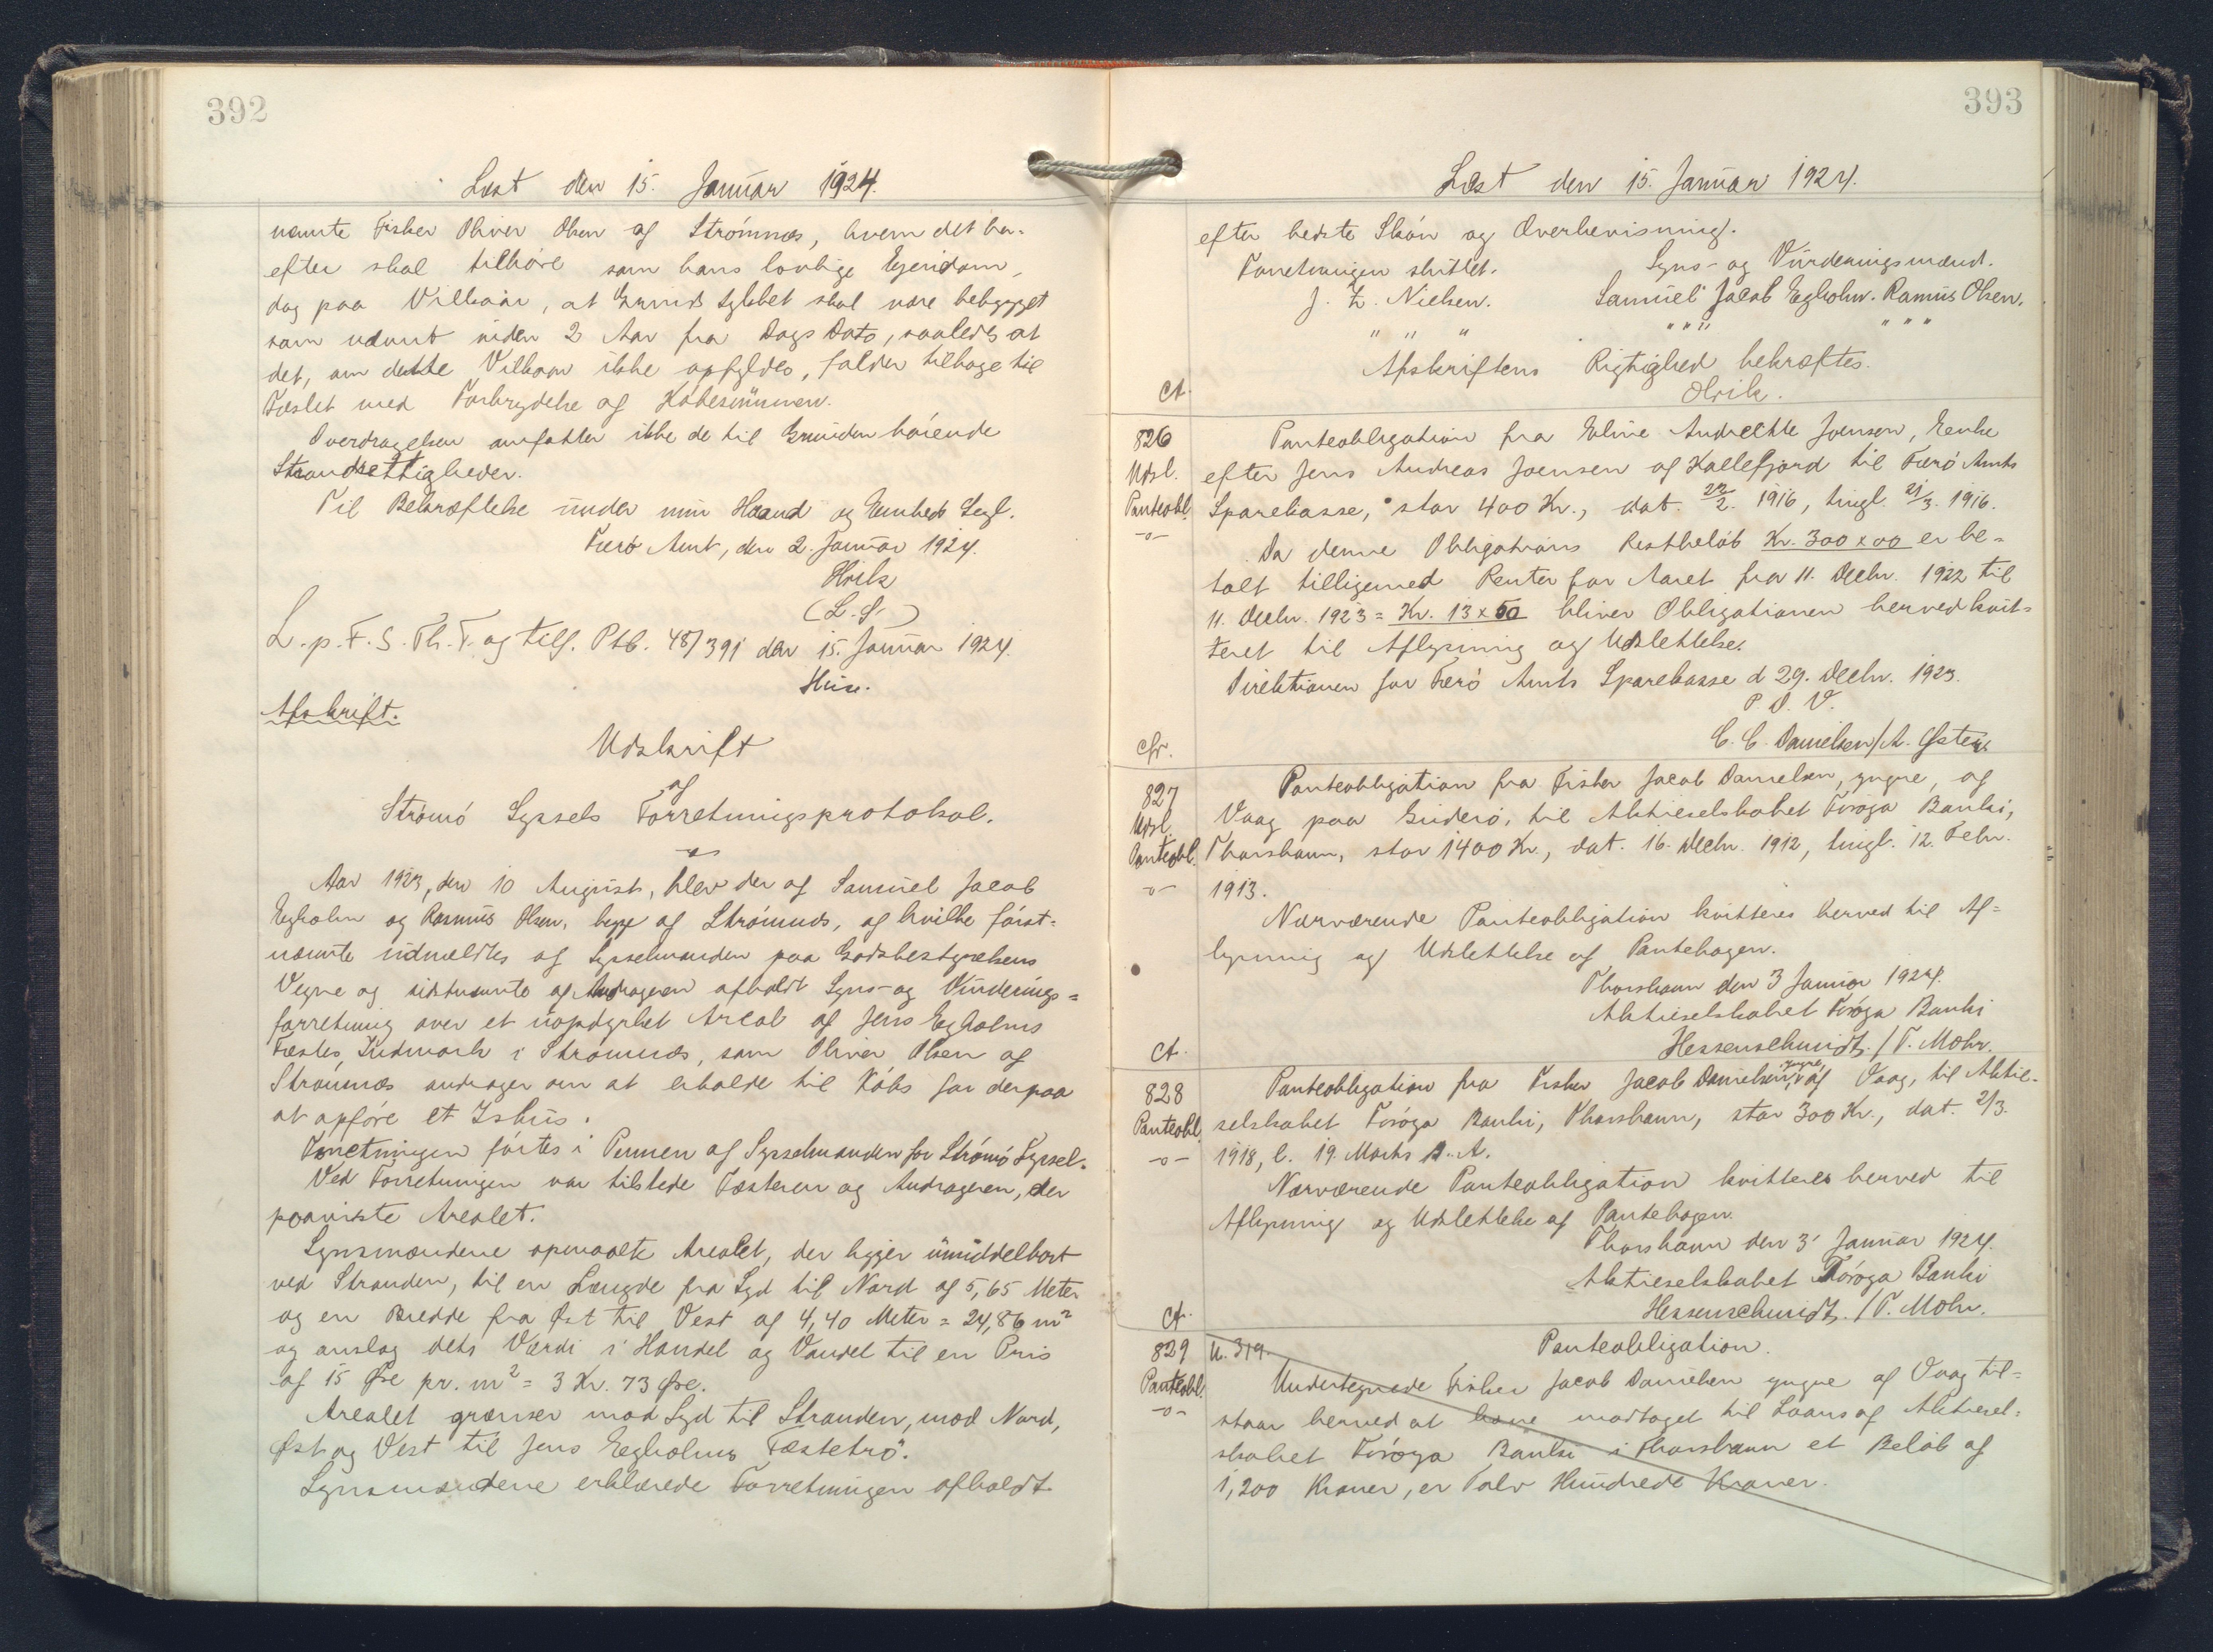 392
Læst den 15. Januar 1924.
nævnte Fisker Oliver Olsen af Strömnæs, hvem det her-
efter skal tilhöre som hans lovlige Ejendom,
dog paa Vilkaar, at Grundstykket skal være bebygget
som nævnt inden 2 Aar fra Dags Dato, saaledes at
det, om dette Vilkaar ikke opfyldes, falder tilbage til
Fæstet med Forbrydelse af Köbesummen.
Overdragelsen omfatter ikke de til Grunden hörende
Strandrettigheder.
Til Bekræftelse under min Haand og Embeds Segl.
Færö Amt, den 2. Januar 1924.
Hvilk
(L. S.)
L. p. F. S. Th. T. og Tilf. Ptb. 48/391 den 15. Januar 1924.
Afskrift.
Udskrift
af
Strömö Syssels Forretningsprotokol.
Aar 1923, den 10 August, blev der af Samuel Jacob
Egholm og Rasmus Olsen, begge af Strömnæs, af hvilke först-
nævnte udmeldtes af Sysselmanden paa Godsbestyrelsens
Vegne og sidstnævnte af Andrageren afholdt Syns- og Vurderings-
forretning over et uopdyrket Areal af Jens Egholms
Fæstes, Indmark i Strömnæs, som Oliver Olsen af
Strömnæs andrager om at erholde til Köbs for derpaa
at opföre et Ishus.
Forretningen förtes i Pennen af Sysselmanden for Strömö Syssel.
Ved Forretningen var tilstede Fæsteren og Andrageren, der
paaviste Arealet.
Synsmændene opmaalte Arealet, der ligger umiddelbart
ved Stranden, til en Længde fra Syd til Nord af 5,65 Meter
og en Bredde fra Øst til Vest af 4,40 Meter = 24,86 m²
og anslog dets Værdi i Handel og Vandel til en Pris
af 15 Øre pr. m² = 3 Kr. 73 Øre.
Arealet grænser mod Syd til Stranden, mod Nord,
Øst og Vest til Jens Egholms Fæstetrö".
Synsmændene erklærede Forretningen afholdt
393
Læst den 15. Januar 1924.
efter bedste Skön og Overbevisning.
Forretningen sluttet. Syns- og Vurderingsmænd.
J. Z. Nielsen. Samuel Jacob Egholm. Rasmus Olsen.
" " " " " " " " "
Afskriftens Rigtighed bekræftes.
Hvilk.
Ct.
826 Panteobligation fra Eline Andrette Joensen, Enke
Udsl. efter Jens Andreas Joensen af Kollefjord til Færö Amts
Panteobl. Sparekasse, stor 400 Kr., dat. 22/2. 1916, tingl. 21/3. 1916.
-o-
Da denne Obligations Restbelöb Kr. 300 x 00 er be-
talt tilligemed Renter for Aaret fra 11. Decbr. 1922 til
11. Decbr. 1923 = Kr. 13 x 50 bliver Obligationen herved kvit-
teret til Aflysning og Udslettelse.
Direktionen for Færö Amts Sparekasse d 29. Decbr. 1923.
P. D. V.
C. C. Danielsen/
cfr.
827 Panteobligation fra Fisker Jacob Danielsen, yngre, af
Udsl. Vaag paa Suderö, til Aktieselskabet Föroya Banki,
Panteobl. Thorshavn, stor 1400 Kr., dat. 16. Decbr. 1912, tingl. 12. Febr.
-o- 1913.
Nærværende Panteobligation kvitteres herved til Af-
lysning og Udslettelse af Pantebogen.
Thorshavn den 3 Januar 1924.
Aktieselskabet Föroya Banki
Hessenschmidt. / T. Mohr.
Ct.
828 Panteobligation fra Fisker Jacob Danielsen, yngre, af Vaag, til Aktie-
Panteobl. selskabet Föroya Banki, Thorshavn, stor 300 Kr., dat. 2/3.
-o- 1918, l. 19. Marts s. A.
Nærværende Panteobligation kvitteres herved til
Aflysning og Udslettelse af Pantebogen.
Thorshavn den 3' Januar 1924.
Aktieselskabet Föroya Banki
Hessenschmidt. / T. Mohr.
Ct.
829 U. 319. Panteobligation.
Panteobl. Undertegnede Fisker Jacob Danielsen yngre af Vaag til-
-o- staar herved at have modtaget til Laans af Aktiesel-
skabet Föroya Banki i Thorshavn et Belöb af
1,200 Kroner, er Tolv Hundrede Kroner.